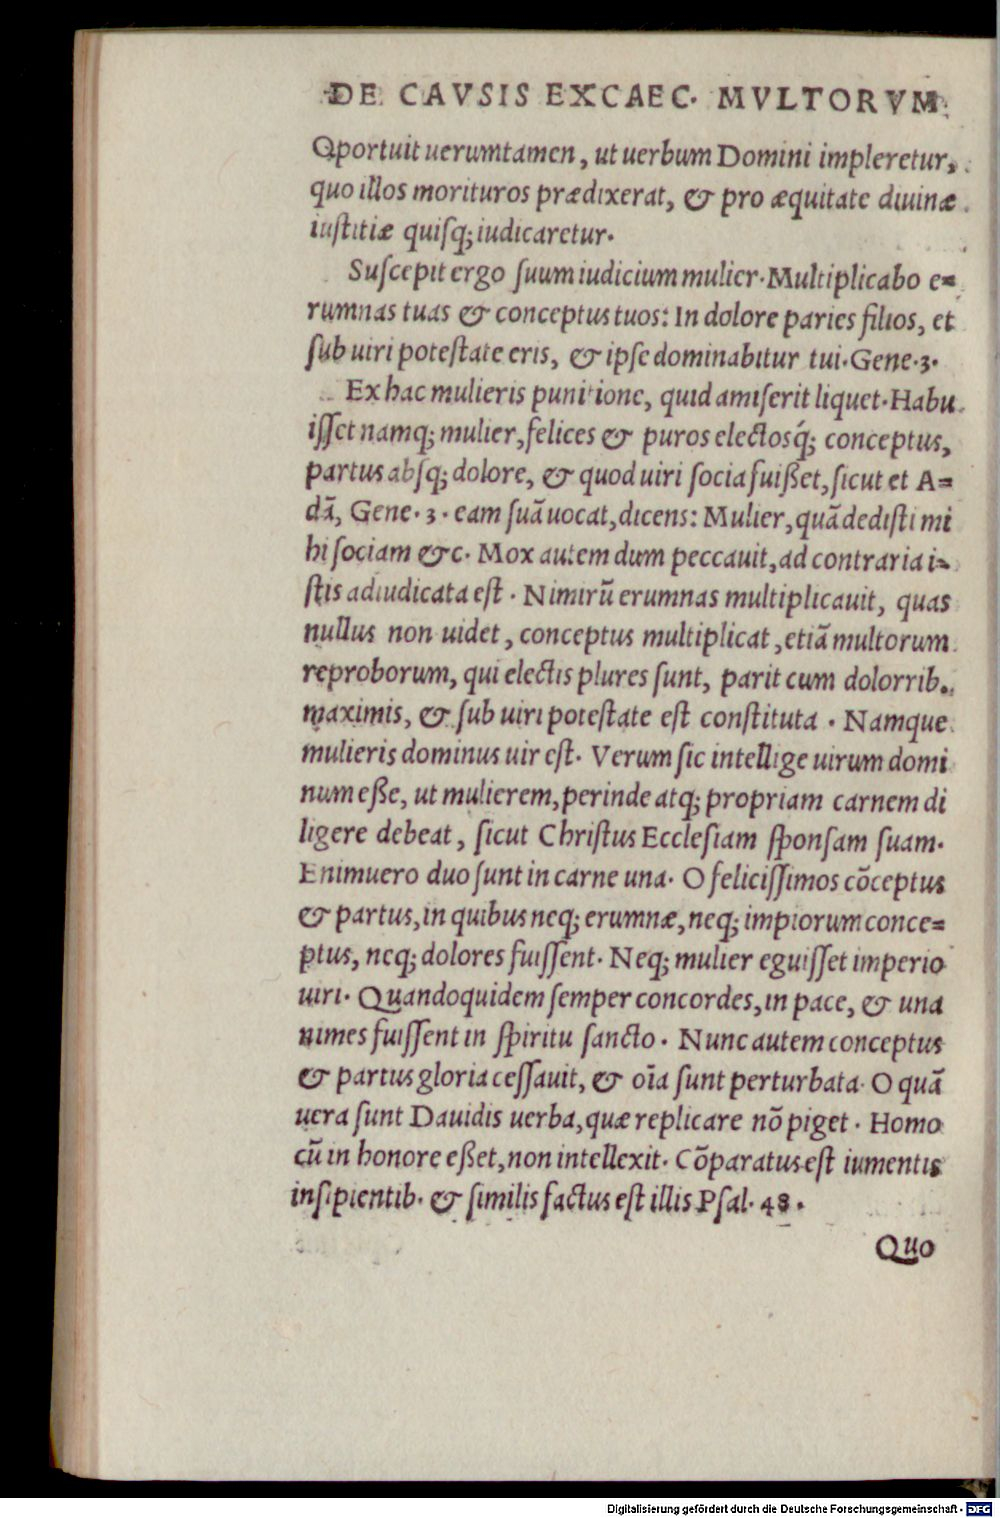 DE CAVSIS EXCAEC. MVLTORVM
Oportuit uerumtamen, ut uerbum Domini impleretur,
quo illos morituros prædixerat, & pro æquitate diuinæ
iustitiæ quisq; iudicaretur.
Suscepit ergo suum iudicium mulier. Multiplicabo e=
rumnas tuas & conceptus tuos: In dolore paries filios, et
sub uiri potestate eris, & ipse dominabitur tui. Gene. 3.
Ex hac mulieris punitione, quid amiserit liquet. Habu
isset namq; mulier, felices & puros electosq́; conceptus,
partus absq; dolore, & quod uiri socia fuißet, sicut et A=
dā, Gene. 3. eam suā uocat, dicens: Mulier, quā dedisti mi
hi sociam &c. Mox autem dum peccauit, ad contraria i=
stis adiudicata est. Nimirū erumnas multiplicauit, quas
nullus non uidet, conceptus multiplicat, etiā multorum
reproborum, qui electis plures sunt, parit cum dolorrib.
maximis, & sub uiri potestate est constituta. Namque
mulieris dominus uir est. Verum sic intellige uirum domi
num eße, ut mulierem, perinde atq; propriam carnem di
ligere debeat, sicut Christus Ecclesiam sponsam suam.
Enimuero duo sunt in carne una. O felicissimos cōceptus
& partus, in quibus neq; erumnæ, neq; impiorum conce=
ptus, neq; dolores fuissent. Neq; mulier eguisset imperio
uiri. Quandoquidem semper concordes, in pace, & una
nimes fuissent in spiritu sancto. Nunc autem conceptus
& partus gloria cessauit, & oīa sunt perturbata. O quā
uera sunt Dauidis uerba, quæ replicare nō piget. Homo
cū in honore eßet, non intellexit. Cōparatus est iumentis
insipientib. & similis factus est illis Psal. 48.
Quo
Digitalisierung gefördert durch die Deutsche Forschungsgemeinschaft - DFG